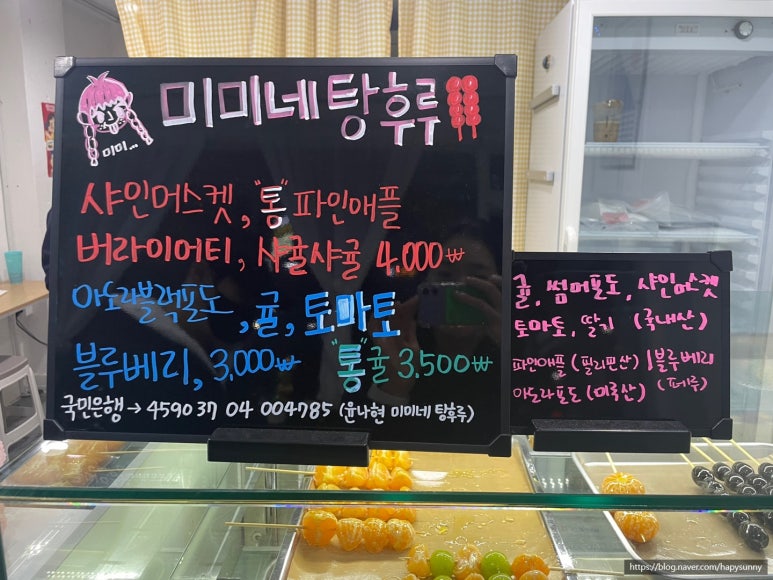 미미네 탕후루
미미...
샤인머스켓, "통" 파인애플
버라이어티, 샤귤샤귤 4.000₩
아도라블랙포도, 귤, 토마토
블루베리, 3,000₩ "통"귤 3.500₩
국민은행 → 4590 37 04 004785 (윤나현 미미네 탕후루)
귤, 썸머포도, 샤인머스켓
토마토, 딸기 (국내산)
파인애플 (필리핀산) / 블루베리
아도라포도 (미국산) (페루)
https://blog.naver.com/hapysunny